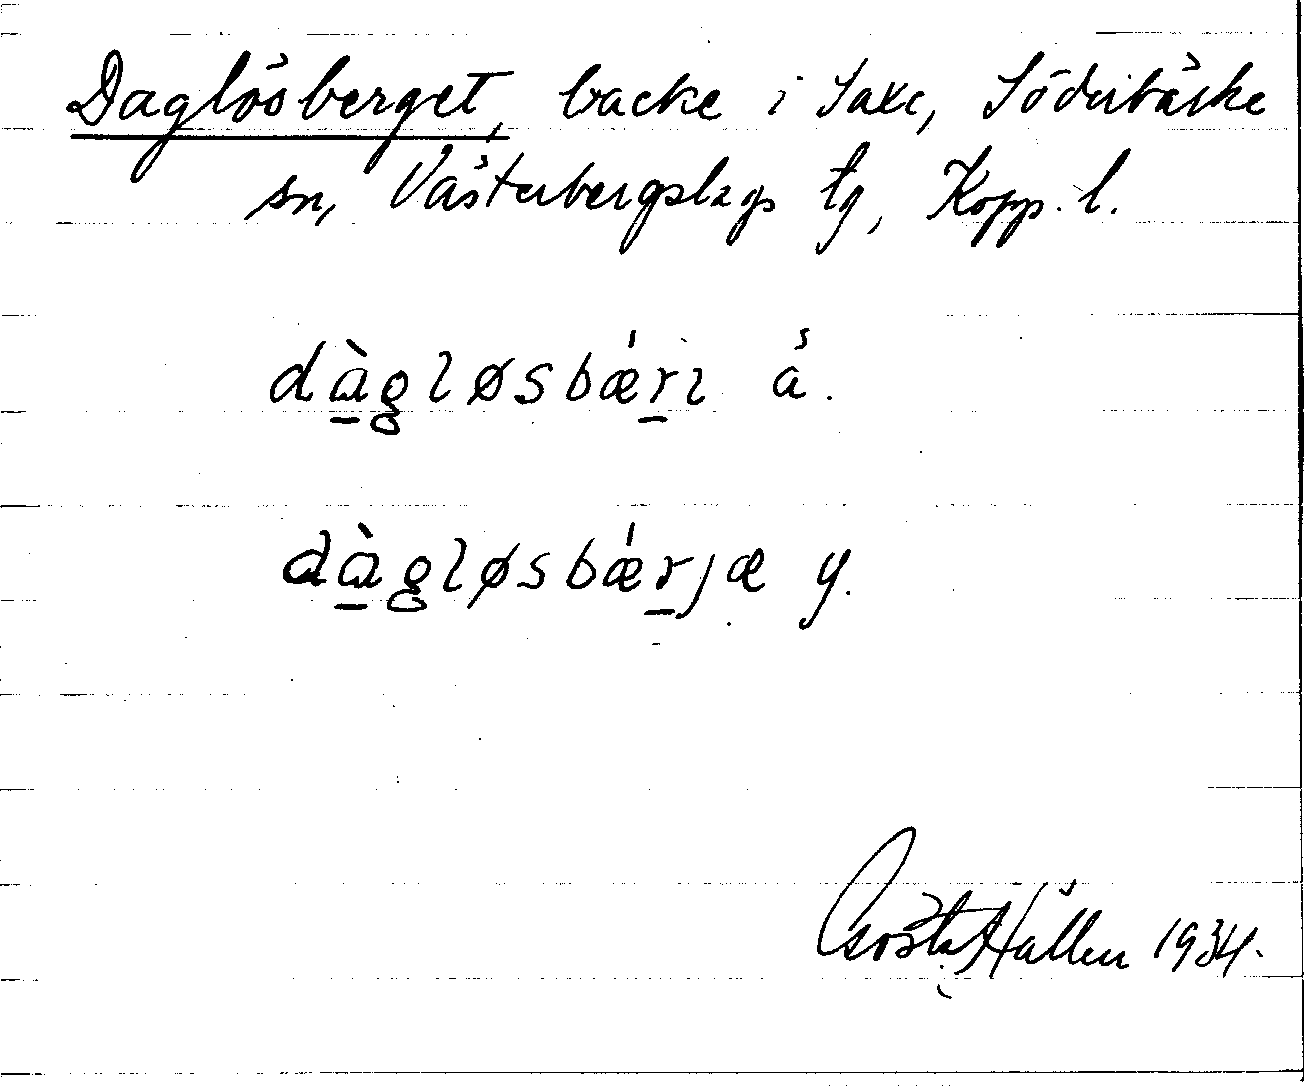 Daglösberget, backe i Saxe, Söderbärke
sn, Västerbergslags tg, Kopp. l.
dàgløsbǽrı ä.
dàgløsbǽrjæ y.
Gösta Hallen 1934.